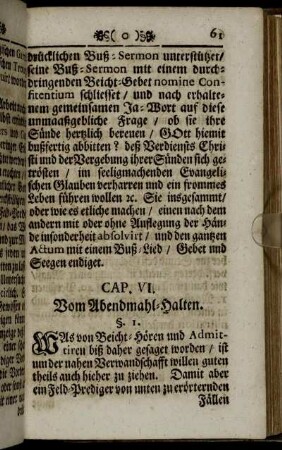 ( o ) 61
drücklichen Buß-Sermon unterstützet/
seine Buß-Sermon mit einem durch-
dringenden Beicht-Gebet nomine Con-
fitentium schliesset / und nach erhalte-
nem gemeinsamen Ja-Wort auf diese
unmaaßgebliche Frage / ob sie ihre
Sünde hertzlich bereuen / GOtt hiemit
bußfertig abbitten? deß Verdiensts Chri-
sti und der Vergebung ihrer Sünden sich ge-
trösten / im seeligmachenden Evangeli-
schen Glauben verharren und ein frommes
Leben führen wollen ꝛc. Sie insgesammt/
oder wie es etliche machen / einen nach dem
andern mit oder ohne Auflegung der Hän-
de insonderheit absolvirt / und den gantzen
Actum mit einem Buß-Lied / Gebet und
Seegen endiget.
CAP. VI.
Vom Abendmahl-Halten.
§. 1.
WAs von Beicht-Hören und Admit-
tiren biß daher gesaget worden / ist
um der nahen Verwandschafft willen guten
theils auch hieher zu ziehen. Damit aber
ein Feld-Prediger von unten zu erörternden
Fällen